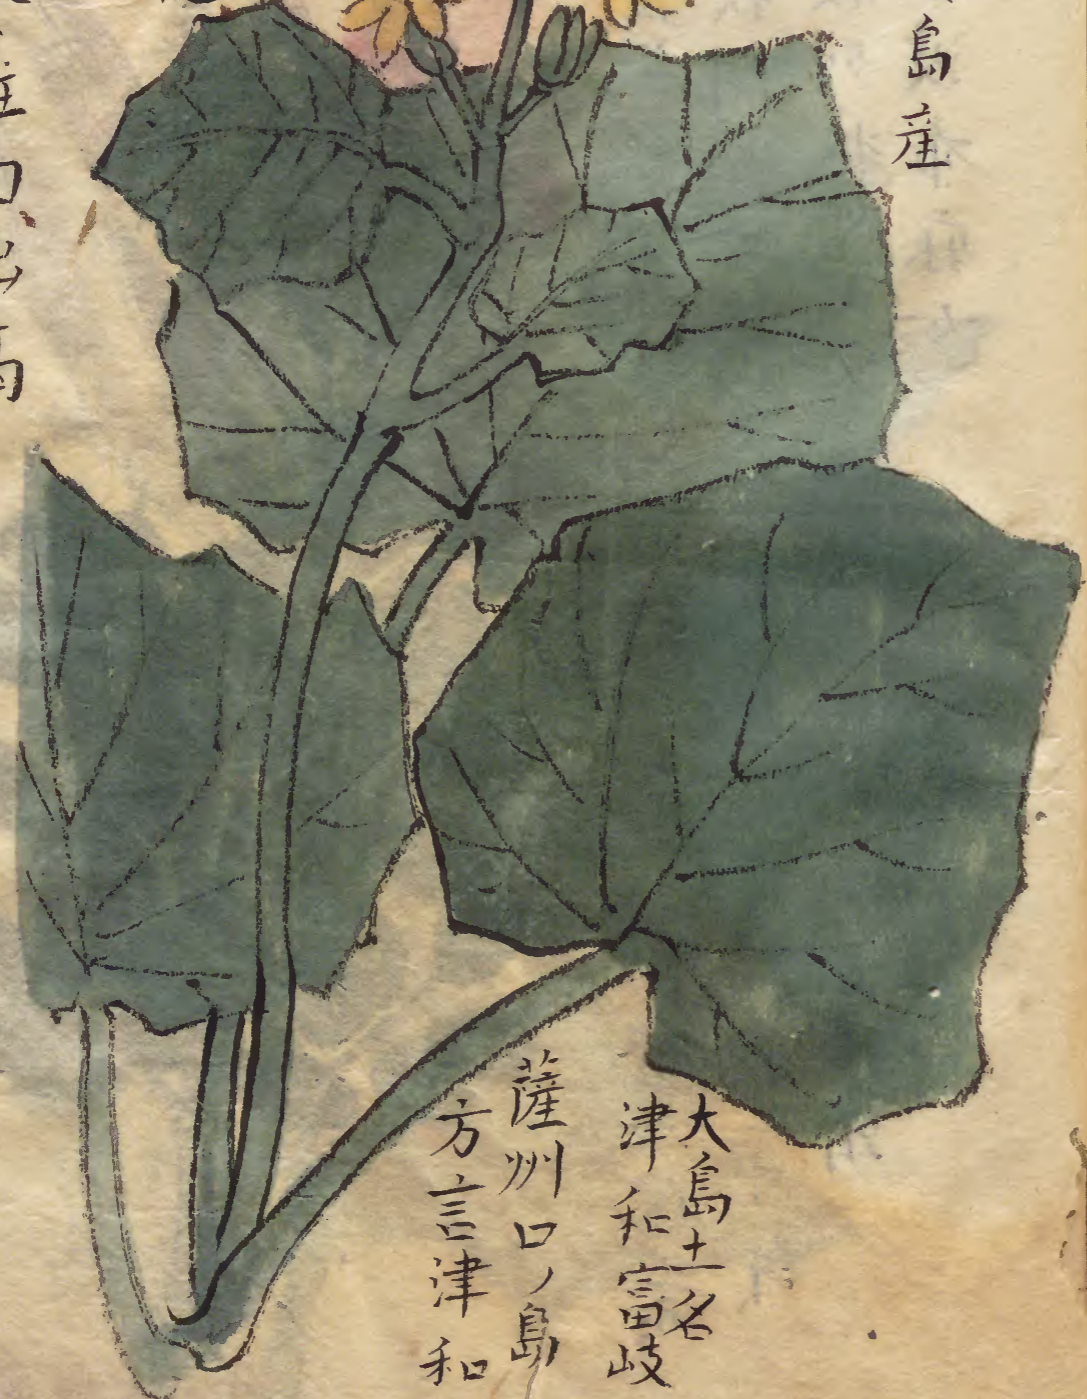 島産
大島土名
津和富岐
薩州口ノ島
方言津和